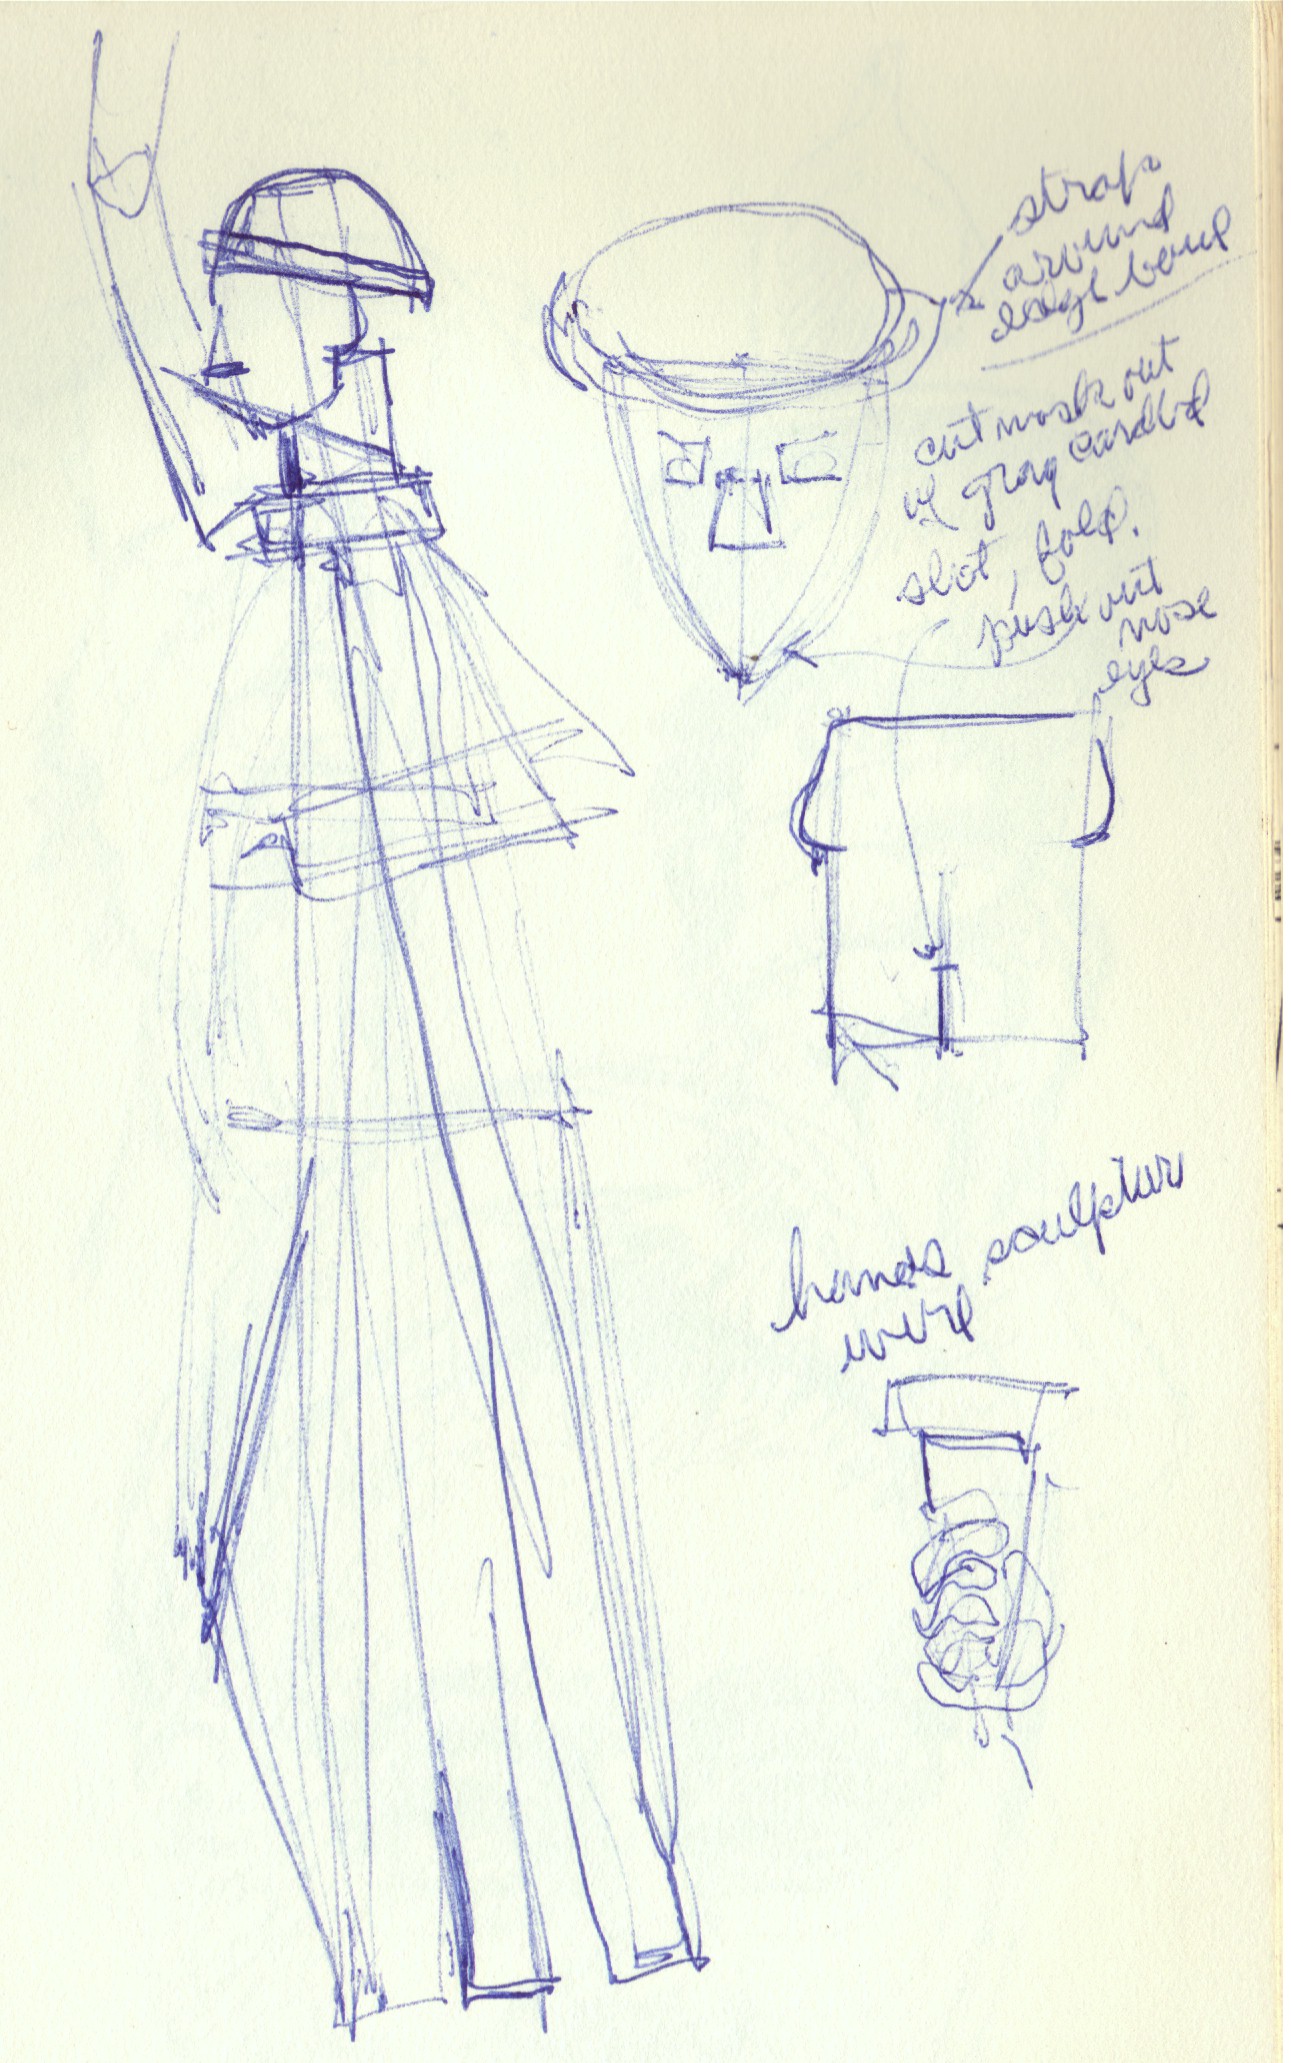 strap
around
edge bowl
cut mask out
of gray cardbd
slot, fold.
push out
nose
eyes
hands sculptur
wire